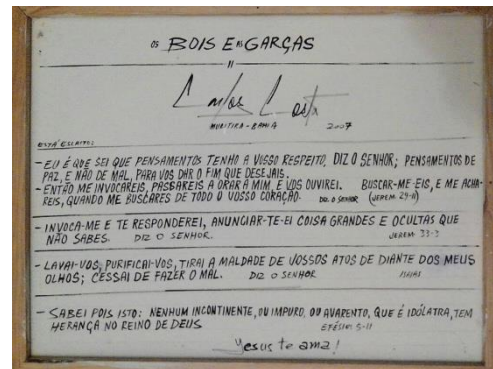 OS BOIS E AS GARÇAS
II
Carlos Costa
MURITIBA - BAHIA 2007
ESTÁ ESCRITO:
- EU É QUE SEI QUE PENSAMENTOS TENHO A VOSSO RESPEITO, DIZ O SENHOR; PENSAMENTOS DE
PAZ, E NÃO DE MAL, PARA VOS DAR O FIM QUE DESEJAIS.
- ENTÃO ME INVOCAREIS, PASSAREIS A ORAR A MIM, E VOS OUVIREI. BUSCAR-ME-EIS, E ME ACHA-
REIS, QUANDO ME BUSCARES DE TODO O VOSSO CORAÇÃO. DIZ O SENHOR (JEREM. 29-11)
- INVOCA-ME E TE RESPONDEREI, ANUNCIAR-TE-EI COISA GRANDES E OCULTAS QUE
NÃO SABES. DIZ O SENHOR. JEREM. 33-3
- LAVAI-VOS, PURIFICAI-VOS, TIRAI A MALDADE DE VOSSOS ATOS DE DIANTE DOS MEUS
OLHOS; CESSAI DE FAZER O MAL. DIZ O SENHOR ISAIAS
- SABEI POIS ISTO: NENHUM INCONTINENTE, OU IMPURO, OU AVARENTO, QUE É IDÓLATRA, TEM
HERANÇA NO REINO DE DEUS EFÉSIO 5-11
Yesus te ama!